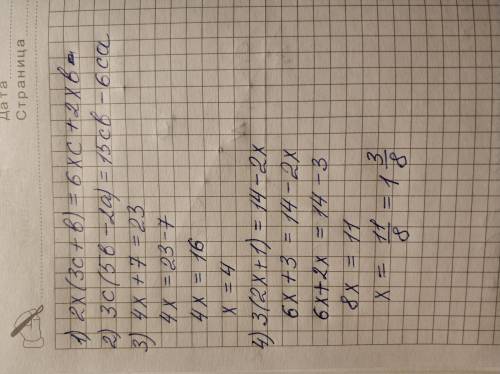 Дата
Страница
1) 2x(3c+b)=6xc+2xb
2) 3c(5b-2a)=15cb-6ca
3) 4x+7=23
4x=23-7
4x=16
x=4
4) 3(2x+1)=14-2x
6x+3=14-2x
6x+2x=14-3
8x=11
x=11/8=1 3/8